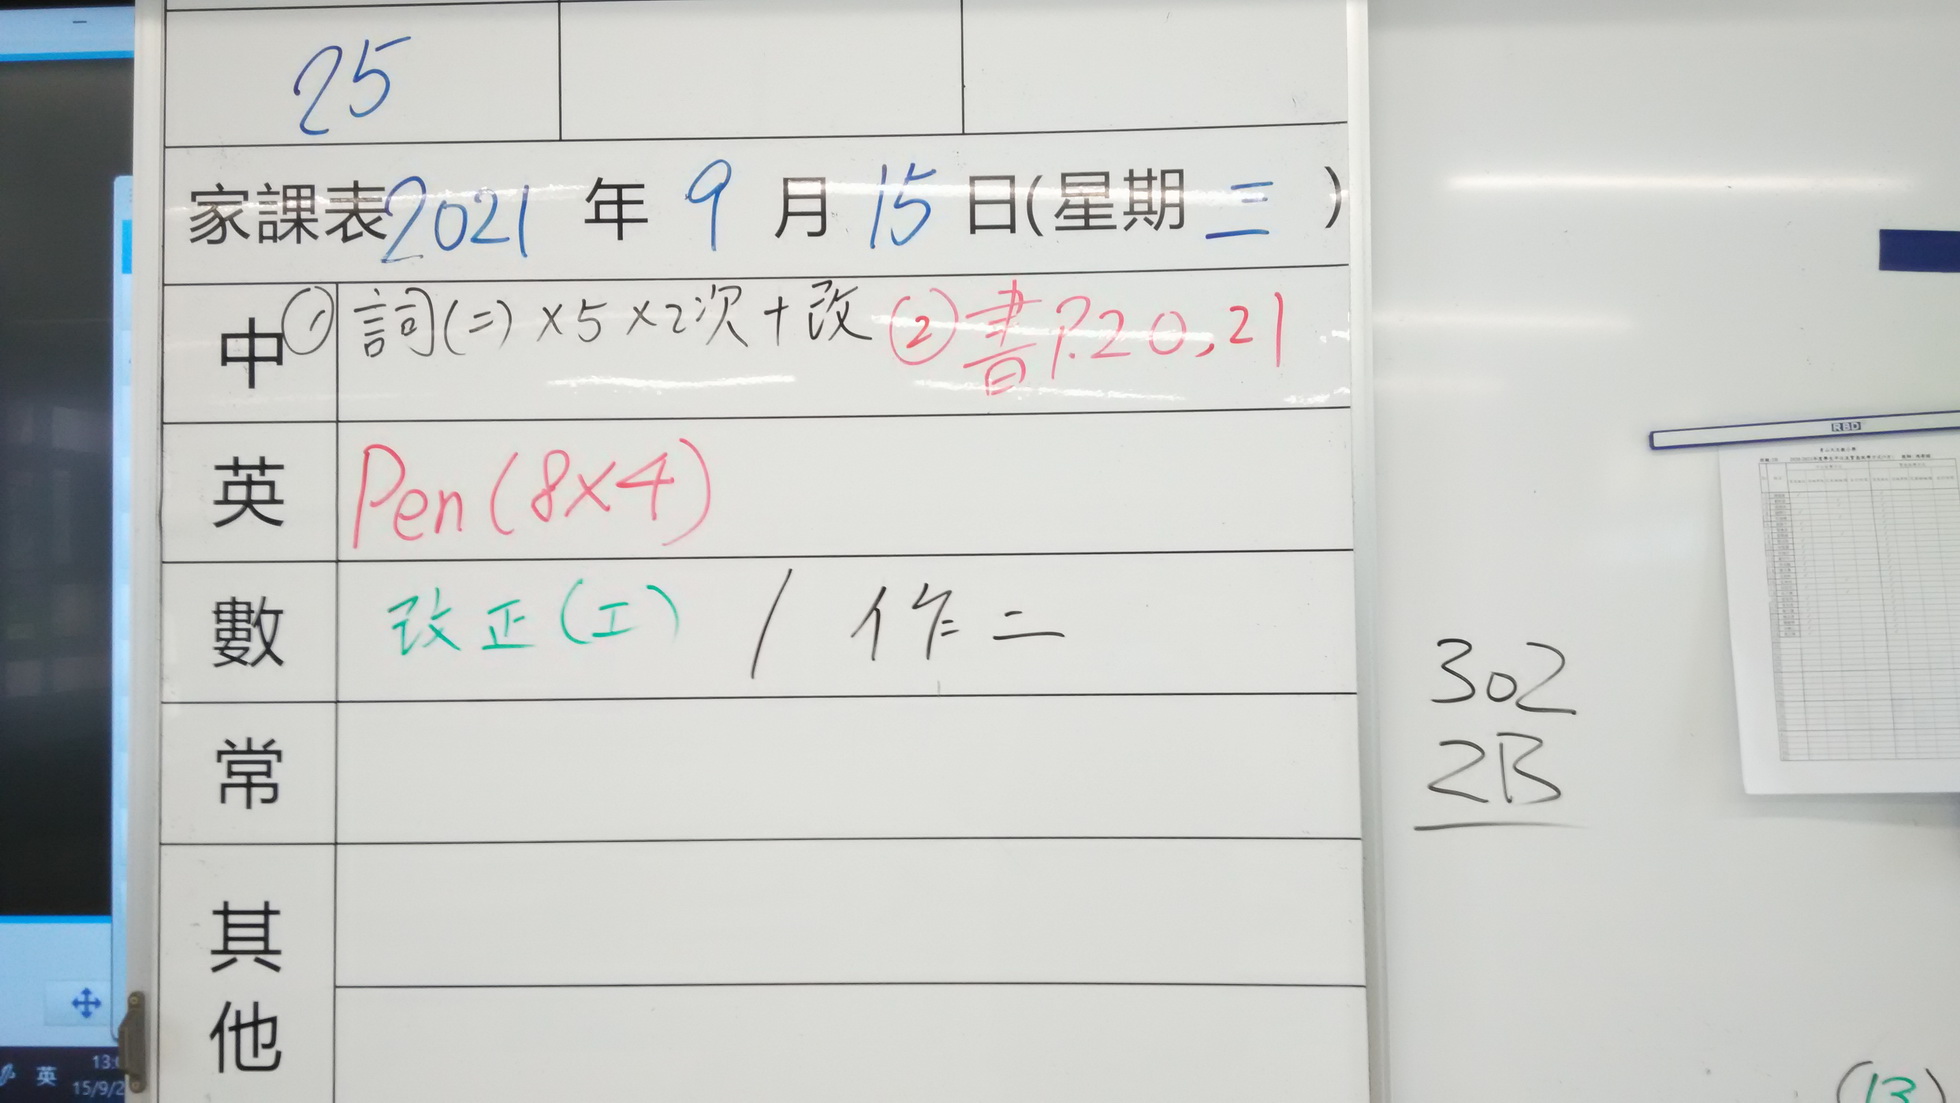 25
家課表2021年9月15日(星期三)
中 ① 詞(二)×5×2次+改 ②書P.20,21
英 Pen(8×4)
數 改正(工) / 作二
常
其他
302
2B
RBD
(13)
英
13:
15/9/2